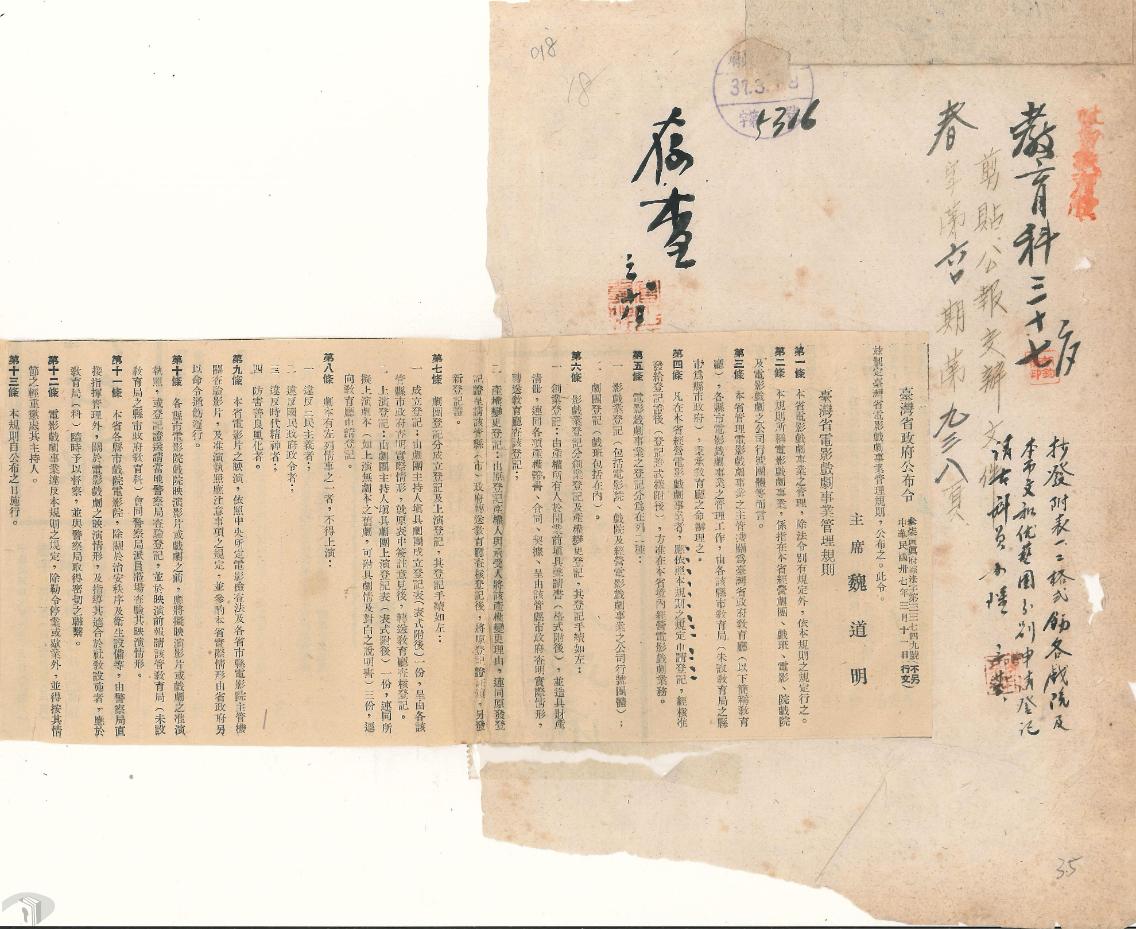 教育科三十七
剪貼公報文辦文件
春字第六〇期第九三八頁
抄發附表一二格式飭各戲院及
本市文和优藝團分别申请登记
018
18
37.3.
5316
存查
臺灣省政府公布令
中華民國卅七年三月十一日
茲制定臺灣省電影戲劇事業管理規則,公布之。此令。
主席 魏道明
臺灣省電影戲劇事業管理規則
第一條 本省電影戲劇事業之管理,除法令別有規定外,依本規則之規定行之。
第二條 本規則所稱電影戲劇事業,係指在本省經營劇團、戲班、電影院戲院
及電影戲劇之公司行號團體等而言。
第三條 本省管理電影戲劇事業之主管機關為臺灣省政府教育廳(以下簡稱教育
廳),各縣市電影戲劇事業之管理工作,由各該縣市教育局(未設教育局之縣
市為縣市政府),秉承教育廳之命辦理之。
第四條 凡在本省經營電影戲劇事業者,應依照本規則之規定申請登記,經核准
發給登記證後(登記證式樣附後),方准在本省境內經營電影戲劇業務。
第五條 電影戲劇事業之登記分為左列二種:
一 影戲業登記(包括電影院、戲院及經營電影戲劇事業之公司行號團體);
二 劇團登記(戲班包括在內)。
第六條 影戲業登記分創業登記及產權變更登記,其登記手續如左:
一 創業登記:由產權所有人於開業前填具聲請書(格式附後),並造具財產
清冊,連同各項產權證書、合同、契據、呈由該管縣市政府查明實際情形,
轉送教育廳核發登記;
二 產權變更登記:由原登記產權人與承受人將該產權變更理由,連同原發登
記證聲請該管縣(市)政府轉送教育廳審核登記後,將原登記證註銷,另發
新登記證。
第七條 劇團登記分成立登記及上演登記,其登記手續如左:
一 成立登記:由劇團主持人填具劇團成立登記表(表式附後)一份,呈由各該
管縣市政府查明實際情形,就原表中簽註意見後,轉送教育廳審核登記。
二 上演登記:由劇團主持人填具劇團上演登記表(表式附後)一份,連同所
擬上演劇本(如上演無劇本之舊劇,可附具劇情及對白之說明書)三份,逕
向教育廳申請登記。
第八條 劇本有左列情事之一者,不得上演:
一 違反三民主義者;
二 違反國民政府政令者;
三 違反時代精神者;
四 妨害善良風化者。
第九條 本省電影片之映演,依照中央所定電影檢查法及各省市縣電影院主管機
關查驗影片,及准演執照應注意事項之規定,並參酌本省實際情形由省政府另
以命令通飭遵行。
第十條 各縣市電影院戲院映演影片或戲劇之前,應將擬映演影片或戲劇之准演
執照,或登記證送請當地警察局查驗登記,並於映演前報請該管教育局(未設
教育局之縣市政府教育科)會同警察局派員蒞場查驗其映演情形。
第十一條 本省各縣市戲院電影院,除關於治安秩序及衛生設備等,由警察局直
接指揮管理外,關於電影戲劇之映演情形,及指導其適合於社教設施者,應於
教育局(科)隨時予以督察,並與警察局取得密切之聯繫。
第十二條 電影戲劇事業違反本規則之規定,除勒令停業或歇業外,並得按其情
節之輕重懲處其主持人。
第十三條 本規則自公布之日施行。
35